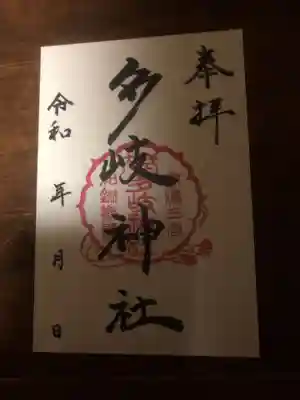 奉拝
多岐神社
令和 年 月 日